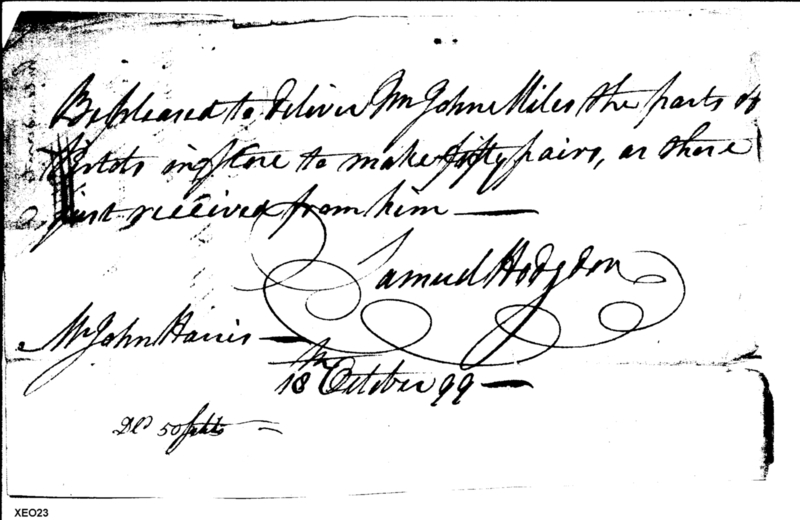 Be pleased to deliver Mr John Miles the parts of
Pistols in Store to make fifty pairs, as those
just received from him —
Samuel Hodgdon
Mr John Harris —
18th October 99 —
Dld 50
XEO23